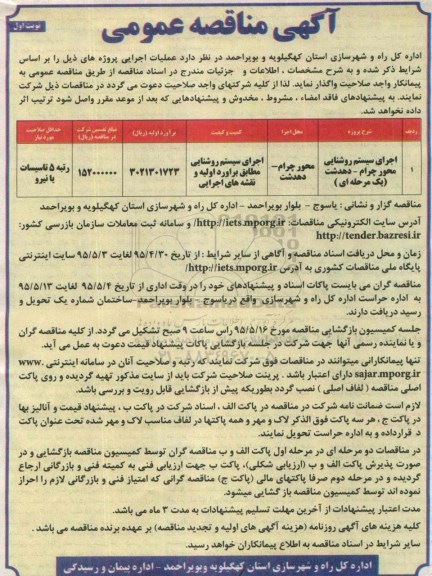 آگهی مناقصه عمومی
نوبت اول
اداره کل راه و شهرسازی استان کهگیلویه و بویراحمد در نظر دارد عملیات اجرایی پروژه های ذیل را بر اساس
شرایط ذکر شده و به شرح مشخصات ، اطلاعات و جزئیات مندرج در اسناد مناقصه از طریق مناقصه عمومی به
پیمانکار واجد صلاحیت واگذار نماید. لذا از کلیه شرکتهای واجد صلاحیت دعوت می گردد در مناقصات ذیل شرکت
نمایند. به پیشنهادهای فاقد امضاء ، مشروط ، مخدوش و پیشنهادهایی که بعد از موعد مقرر واصل شود ترتیب اثر
داده نخواهد شد.
ردیف شرح پروژه محل اجرا کمیت و کیفیت برآورد اولیه (ریال) مبلغ تضمین شرکت در مناقصه (ریال) حداقل صلاحیت مورد نیاز
۱ اجرای سیستم روشنایی محور چرام -دهدشت (یک مرحله ای) محور چرام- دهدشت اجرای سیستم روشنایی مطابق براورد اولیه و نقشه های اجرایی ۳۰۲۱۳۰۱۷۲۳ ۱۵۲۰۰۰۰۰۰ رتبه ۵ تاسیسات یا نیرو
مناقصه گزار و نشانی : یاسوج - بلوار بویراحمد - اداره کل راه و شهرسازی استان کهگیلویه و بویراحمد
آدرس سایت الکترونیکی مناقصات: http://iets.mporg.ir/ و سامانه ثبت معاملات سازمان بازرسی کشور:
http://tender.bazresi.ir
زمان و محل دریافت اسناد مناقصه و آگاهی از سایر شرایط : از تاریخ ۹۵/۴/۳۰ لغایت ۹۵/۵/۳ سایت اینترنتی
پایگاه ملی مناقصات کشوری به آدرس http://iets.mporg.ir/
مناقصه گران می بایست پاکات اسناد و پیشنهادهای خود را در وقت اداری از تاریخ ۹۵/۵/۴ لغایت ۹۵/۵/۱۳
به اداره حراست اداره کل راه و شهرسازی واقع درياسوج - بلوار بویراحمد-ساختمان شماره یک تحویل و
رسید دریافت دارند.
جلسه کمیسیون بازگشایی مناقصه مورخ ۹۵/۵/۱۶ راس ساعت ۹ صبح تشکیل می گردد. از کلیه مناقصه گران
و یا نماینده رسمی آنها جهت شرکت در جلسه بازگشایی پاکات پیشنهاد قیمت دعوت به عمل می آید.
تنها پیمانکارانی میتوانند در مناقصات فوق شرکت نمایند که رتبه و صلاحیت آنان در سامانه اینترنتی www.
sajar.mporg.ir دارای اعتبار باشد . پرینت صلاحیت شرکت باید از سایت مذکور تهیه گردیده و روی پاکت
اصلی مناقصه ( لفاف اصلی ) نصب گردد بطوریکه پیش از بازگشایی قابل رویت و بررسی باشد.
لازم است ضمانت نامه شرکت در مناقصه در پاکت الف ، اسناد شرکت در پاکت ب ، پیشنهاد قیمت و آنالیز بها
در پاکت ج ، هر سه پاکت فوق الذکر لاک و مهر و همه پاکتها در لفاف مناسب لاک و مهر شده تحت عنوان پاکت
د قرارداده و به اداره حراست تحویل نمایند.
در مناقصات دو مرحله ای در مرحله اول پاکت الف و ب مناقصه گران توسط کمیسیون مناقصه بازگشایی و در
صورت پذیرش پاکت الف و ب (ارزیابی شکلی)، پاکت ب جهت ارزیابی فنی به کمیته فنی و بازرگانی ارجاع
گردیده و در مرحله دوم صرفا پاکتهای مالی (پاکت ج) مناقصه گرانی که امتیاز فنی و بازرگانی لازم را احراز
نموده اند توسط کمیسیون مناقصه باز گشایی میشود.
مدت اعتبار پیشنهادات از آخرین مهلت تسلیم پیشنهادات به مدت ۳ ماه می باشد.
کلیه هزینه های آگهی روزنامه (هزینه آگهی های اولیه و تجدید مناقصه) بر عهده برنده مناقصه می باشد .
سایر شرایط در اسناد مناقصه به اطلاع پیمانکاران خواهد رسید.
اداره کل راه و شهرسازی استان کهگیلویه وبویراحمد - اداره پیمان و رسیدگی